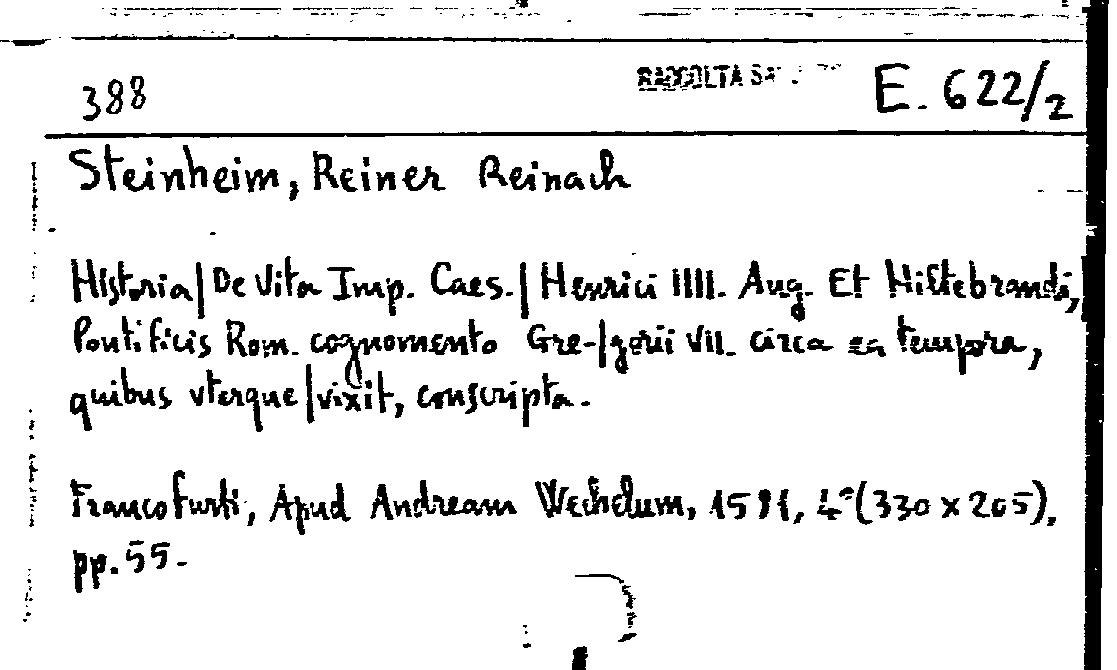 388 RACCOLTA E. 622/2
Steinheim, Reiner Reinach
Historia|De Vita Imp. Caes.|Henrici IIII. Aug. Et Hiltebrandi,
Pontificis Rom. cognomento Gre-|gorii VII. circa ea tempora,
quibus vterque|vixit, conscripta.
Francofurti, Apud Andream Wechelum, 1581, 4°(330 x 205),
pp. 55.